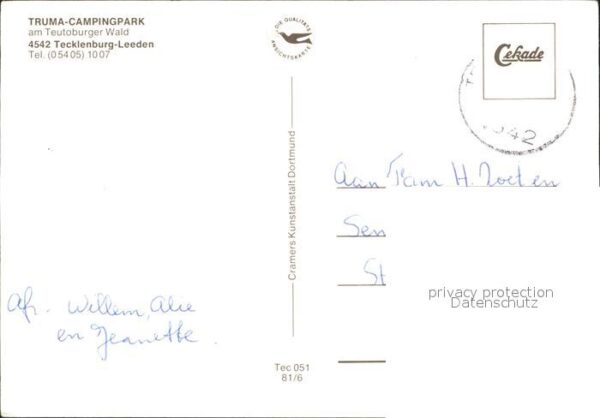 TRUMA-CAMPINGPARK
am Teutoburger Wald
4542 Tecklenburg-Leeden
Tel. (05405) 1007
DIE QUALITÄTS
ANSICHTSKARTE
Cekade
542
Cramers Kunstanstalt Dortmund
Aan Fam H.
Sen
St
privacy protection
Datenschutz
Afz. Willem, Alie
en Jeanette
Tec 051
81/6